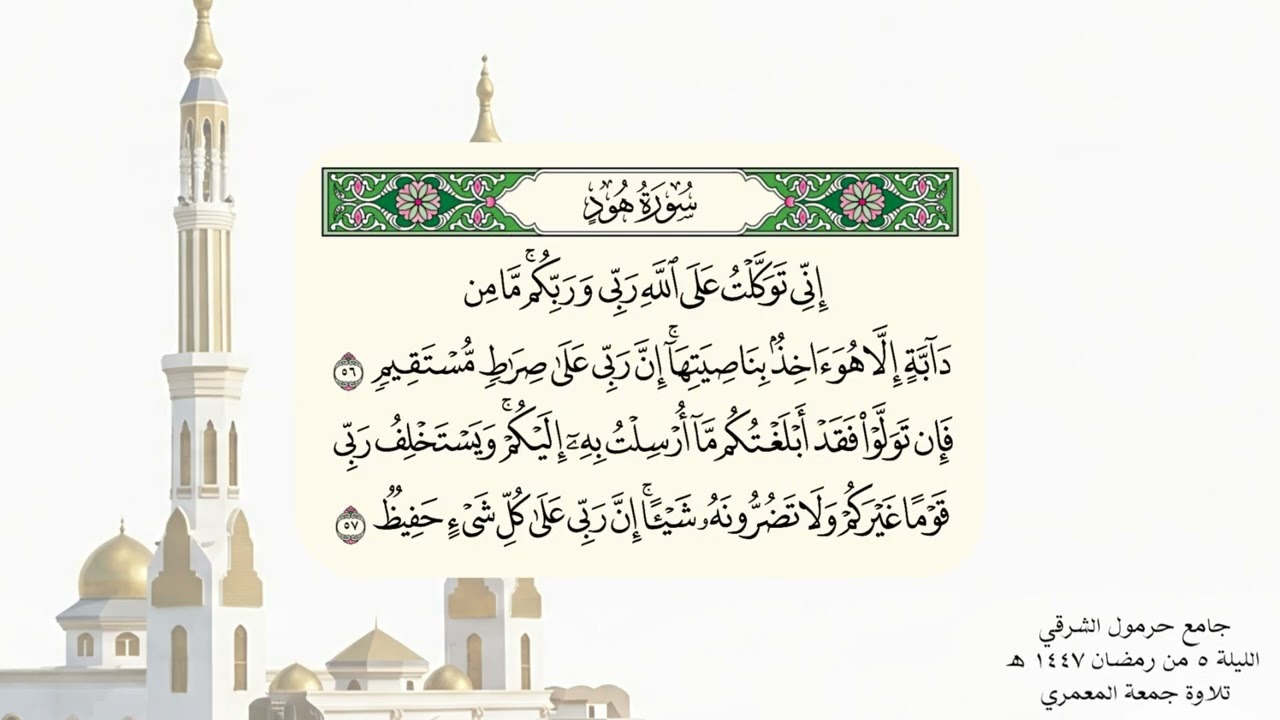 سُورَةُ هُودٍ
إِنِّي تَوَكَّلۡتُ عَلَى ٱللَّهِ رَبِّي وَرَبِّكُمۚ مَّا مِن
دَآبَّةٍ إِلَّا هُوَ ءَاخِذُۢ بِنَاصِيَتِهَآۚ إِنَّ رَبِّي عَلَىٰ صِرَٰطٖ مُّسۡتَقِيمٖ ٥٦
فَإِن تَوَلَّوۡاْ فَقَدۡ أَبۡلَغۡتُكُم مَّآ أُرۡسِلۡتُ بِهِۦٓ إِلَيۡكُمۡۚ وَيَسۡتَخۡلِفُ رَبِّي
قَوۡمًا غَيۡرَكُمۡ وَلَا تَضُرُّونَهُۥ شَيۡـًٔاۚ إِنَّ رَبِّي عَلَىٰ كُلِّ شَيۡءٍ حَفِيظٞ ٥٧
جامع حرمول الشرقي
الليلة ٥ من رمضان ١٤٤٧ هـ
تلاوة جمعة المعمري